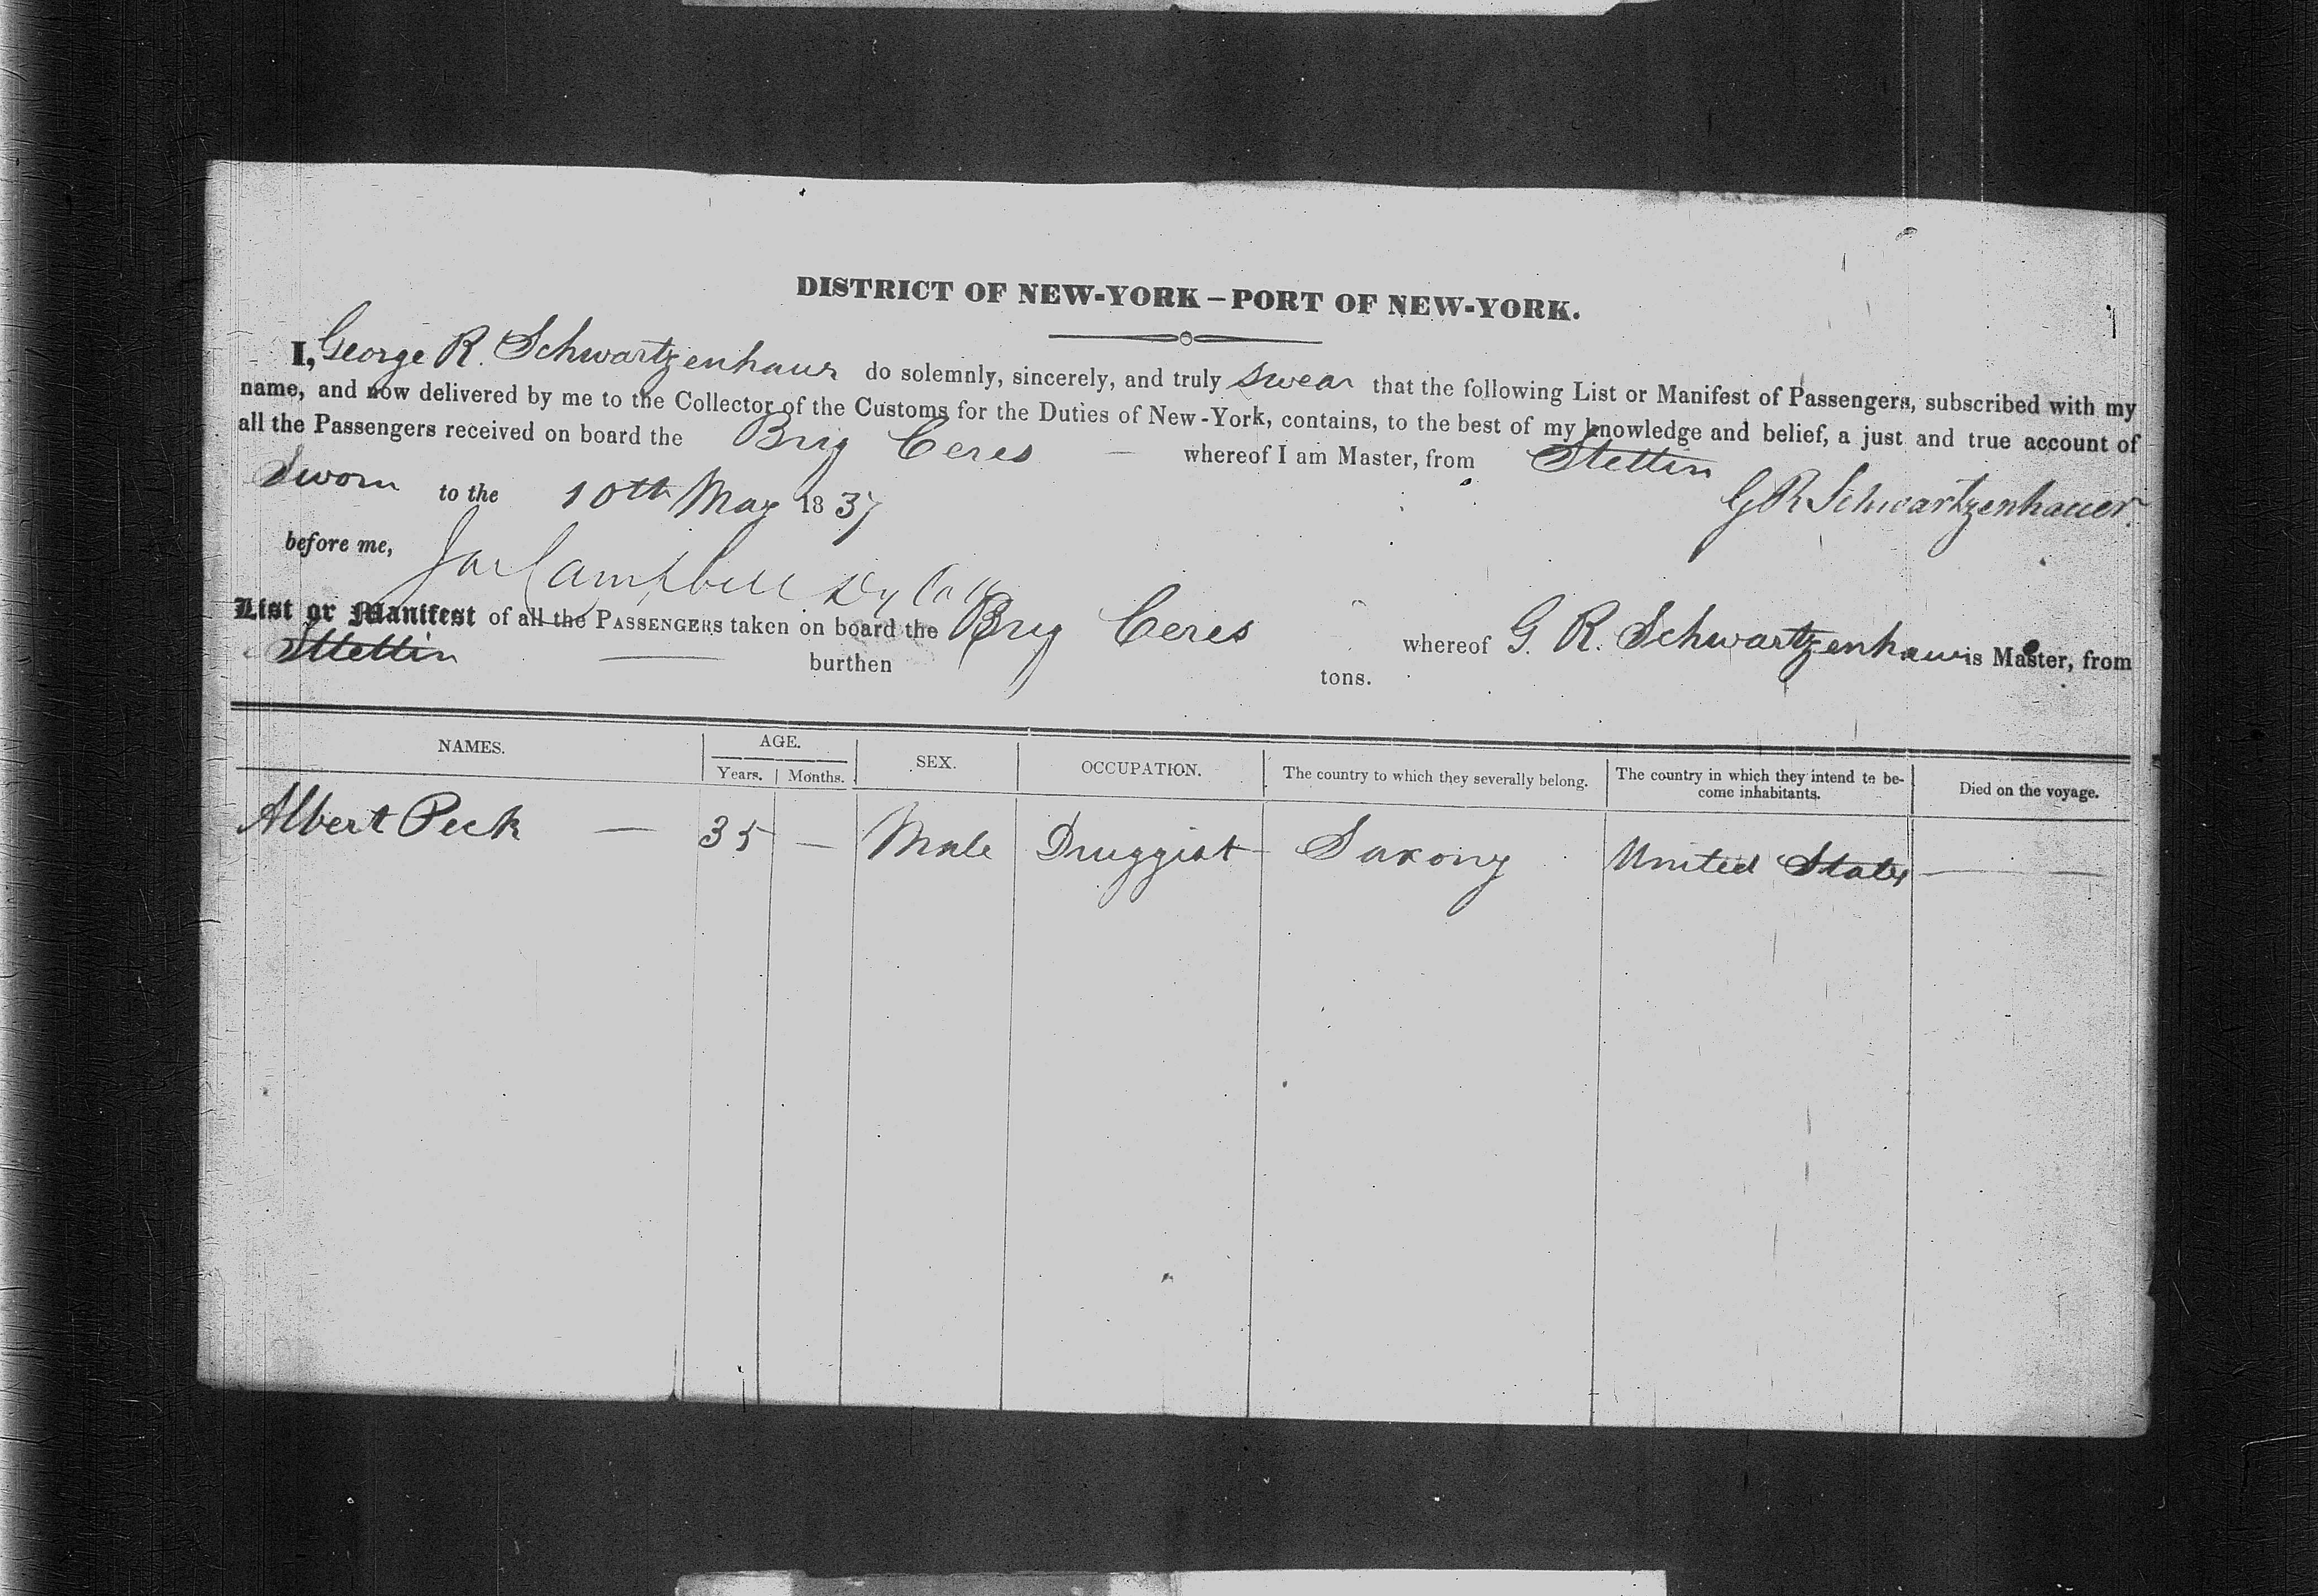 DISTRICT OF NEW-YORK – PORT OF NEW-YORK.
I, George R. Schwartzenhauer do solemnly, sincerely, and truly swear that the following List or Manifest of Passengers, subscribed with my
name, and now delivered by me to the Collector of the Customs for the Duties of New-York, contains, to the best of my knowledge and belief, a just and true account of
all the Passengers received on board the Brig Ceres — whereof I am Master, from Stettin
Sworn to the 10th May 1837
G R Schwartzenhauer.
before me, Jas Campbell Dy Coll
List or Manifest of all the PASSENGERS taken on board the Brig Ceres whereof G. R. Schwartzenhauer is Master, from
Stettin — burthen tons.
NAMES. AGE. SEX. OCCUPATION. The country to which they severally belong. The country in which they intend to be- Died on the voyage.
Years. Months. come inhabitants.
Albert Peck — 35 — Male Druggist Saxony United States — —